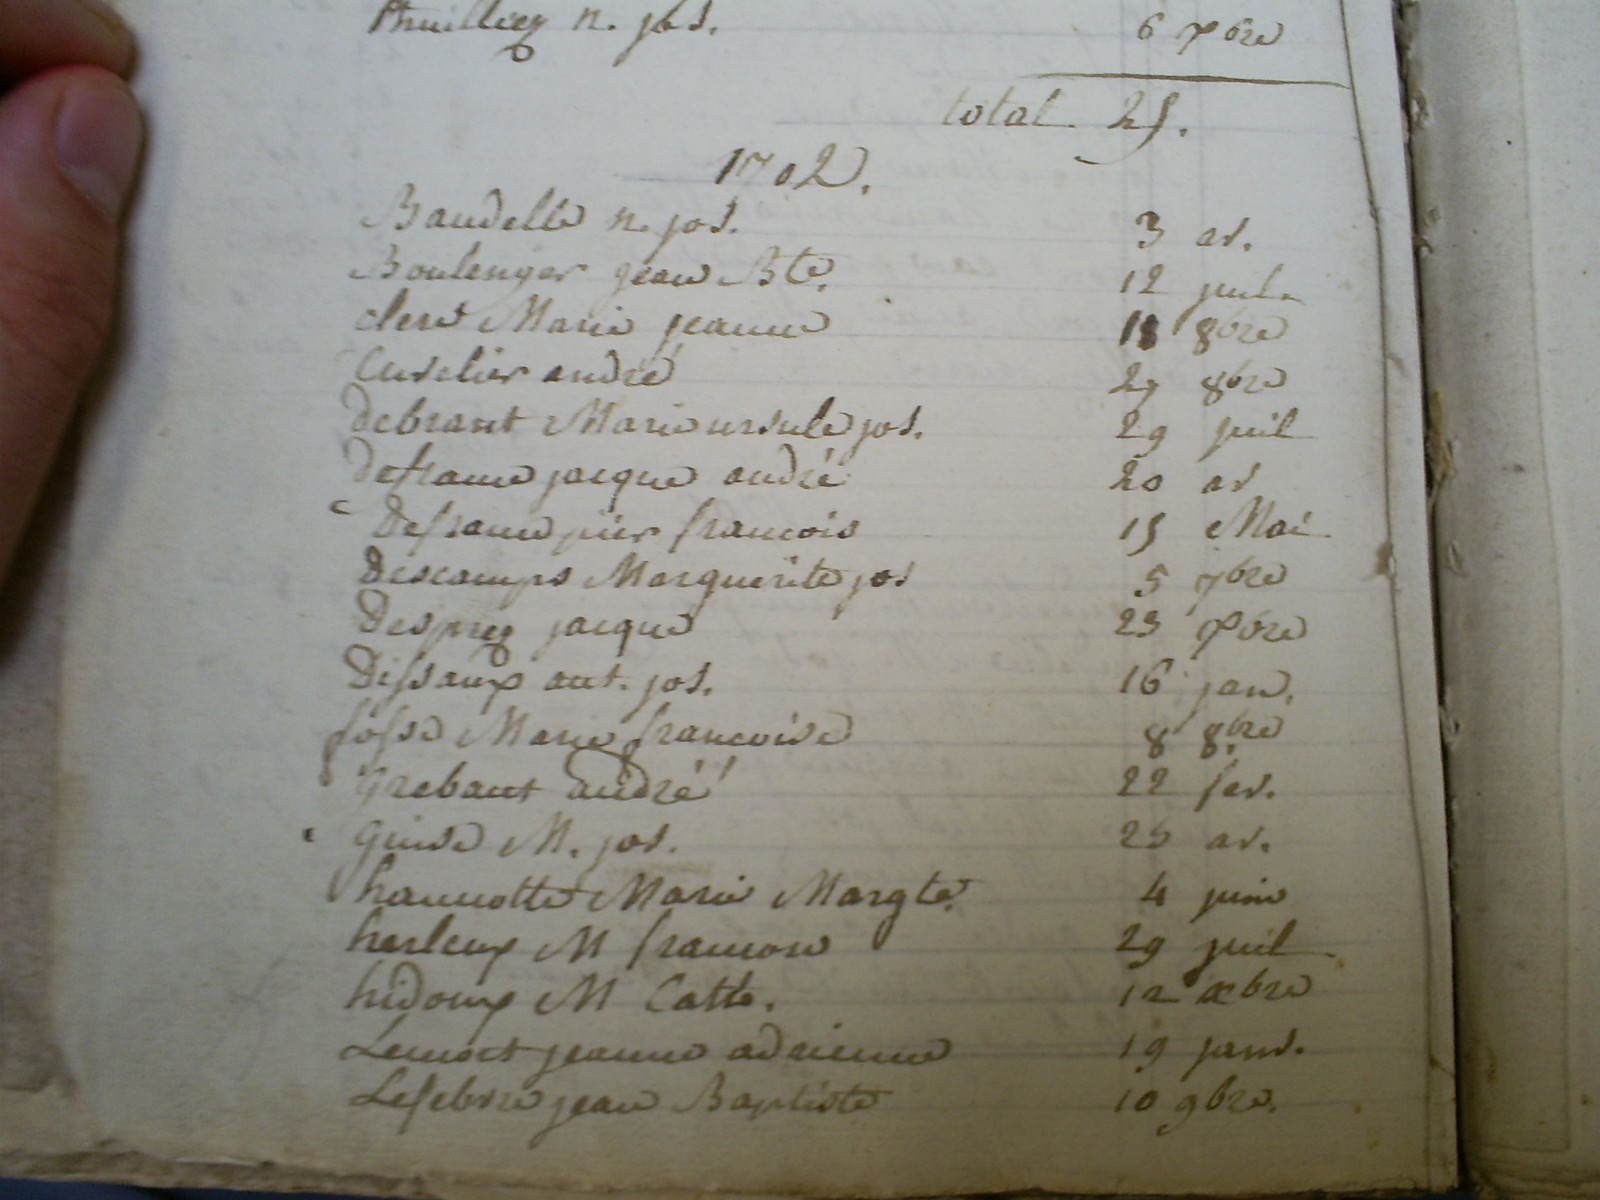 Thuilliez n. jos. 6 xbre
total 25.
1702.
Baudelle n. jos. 3 av.
Boulenger jean Bte. 12 juil.
clere Marie jeanne 18 8bre
Cuvelier andré 29 8bre
debrant Marie ursule jos. 29 juil
defrance jacque andré 20 av
Defrance pier francois 15 Mai
Descamps Marguerite jos 5 7bre
Desprez jacque 23 xbre
Dissaux ant. jos. 16 jan.
fosse Marie francoise 8 8bre
Grebant andré 22 fev.
guise M. jos. 25 av.
hannotte Marie Margte. 4 juin
herleux M francoise 29 juil
hidoux M Catte. 12 xbre
Lemort jeanne adrienne 19 janv.
Lefebvre jean Baptiste 10 9bre.